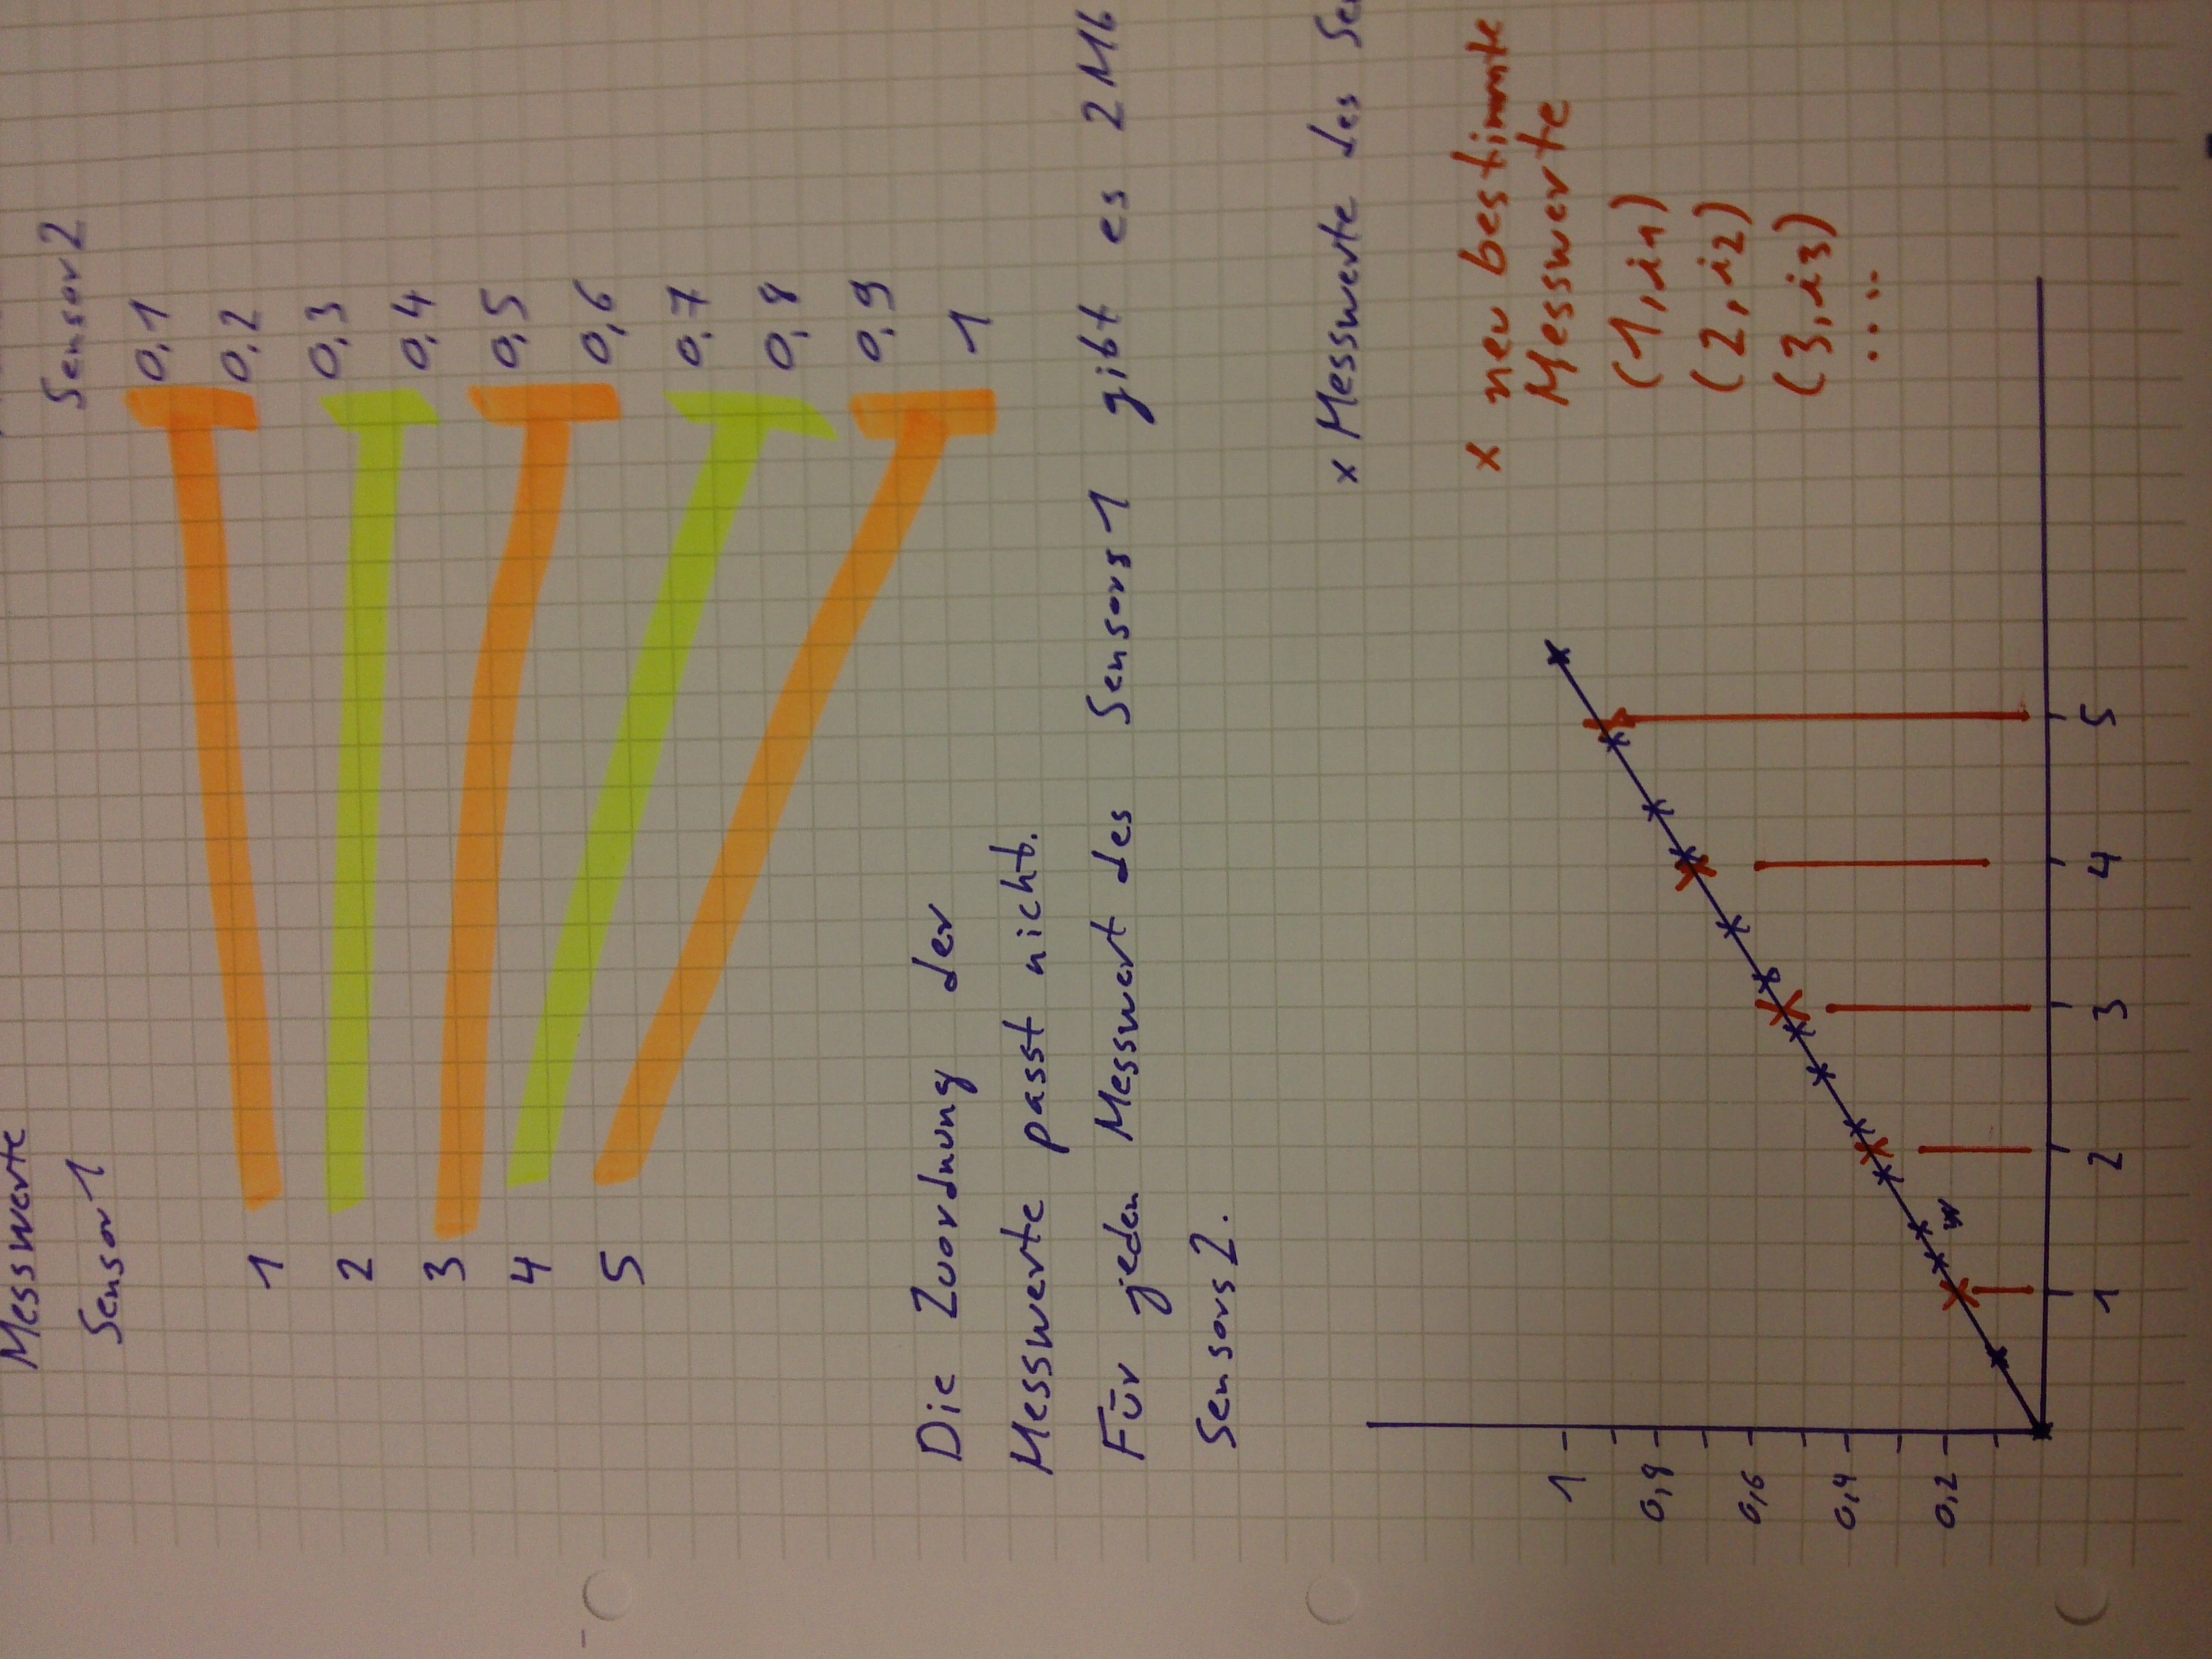 Messwerte
Sensor 1 Sensor 2
1 0,1
0,2
2 0,3
0,4
3 0,5
0,6
4 0,7
0,8
5 0,9
1
Die Zuordnung der
Messwerte passt nicht.
Für jeden Messwert des Sensors 1 gibt es 2 Mb
Sensors 2.
x Messwerte des Se
x neu bestimmte
Messwerte
(1, i1)
(2, i2)
(3, i3)
....
1
0,8
0,6
0,4
0,2
1 2 3 4 5